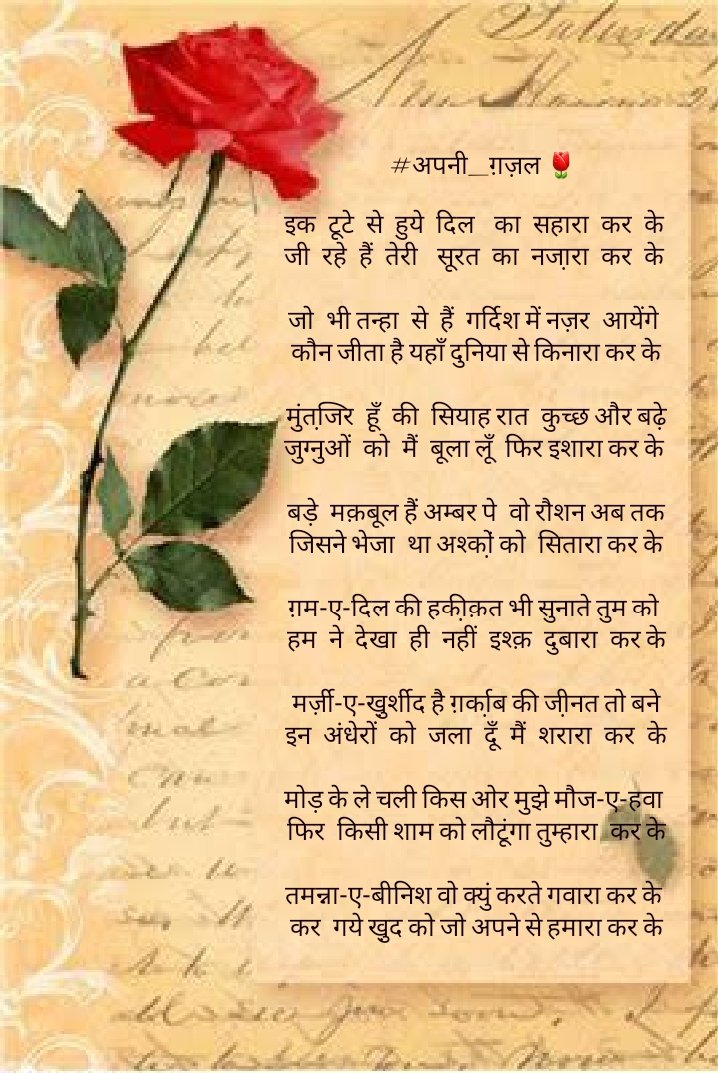 #अपनी_ग़ज़ल 🌷
इक टूटे से हुये दिल का सहारा कर के
जी रहे हैं तेरी सूरत का नजा़रा कर के
जो भी तन्हा से हैं गर्दिश में नज़र आयेंगे
कौन जीता है यहाँ दुनिया से किनारा कर के
मुंतजि़र हूँ की सियाह रात कुच्छ और बढ़े
जुग्नुओं को मैं बूला लूँ फिर इशारा कर के
बड़े मक़बूल हैं अम्बर पे वो रौशन अब तक
जिसने भेजा था अश्कों़ को सितारा कर के
ग़म-ए-दिल की हकी़क़त भी सुनाते तुम को
हम ने देखा ही नहीं इश्क़ दुबारा कर के
मर्ज़ी-ए-खु़र्शीद है ग़र्का़ब की जी़नत तो बने
इन अंधेरों को जला दूँ मैं शरारा कर के
मोड़ के ले चली किस ओर मुझे मौज-ए-हवा
फिर किसी शाम को लौटूंगा तुम्हारा कर के
तमन्ना-ए-बीनिश वो क्युं करते गवारा कर के
कर गये खु़द को जो अपने से हमारा कर के